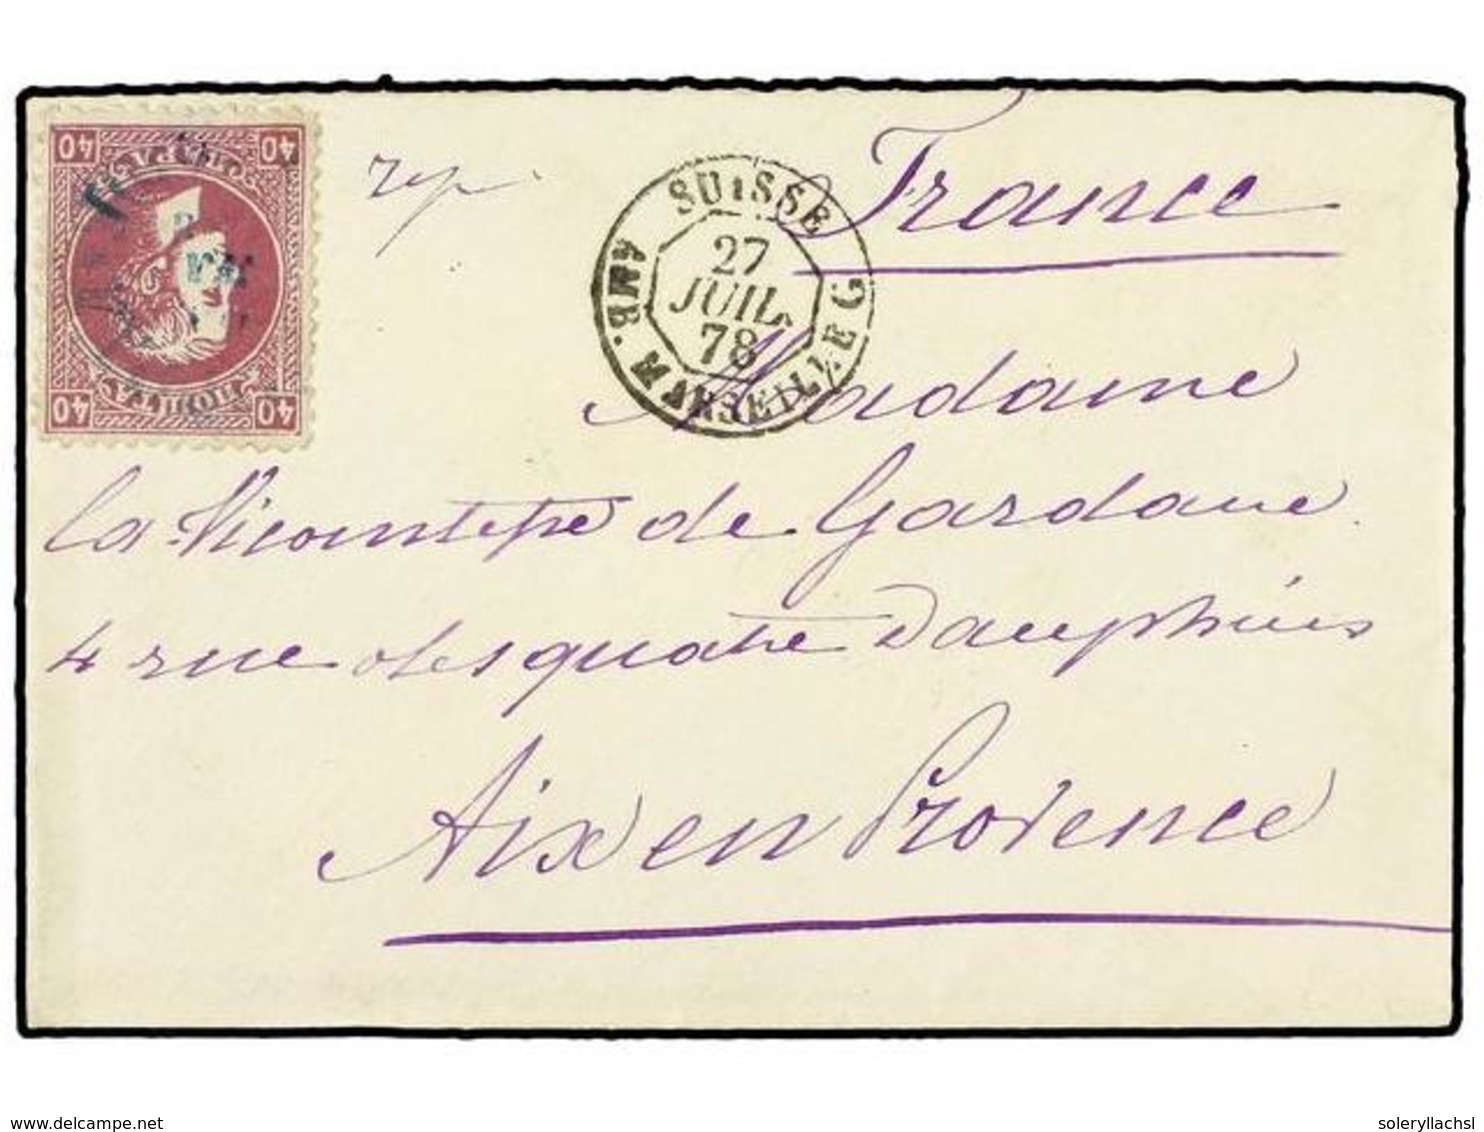 40 40
rep
France
SUISSE
27
JUIL.
78
AMB. MARSEILLE G
Madame
la Vicomtesse de Gardane
4 rue des quatre Dauphins
Aix en Provence
40 40
www.delcampe.net
soleryllachsl